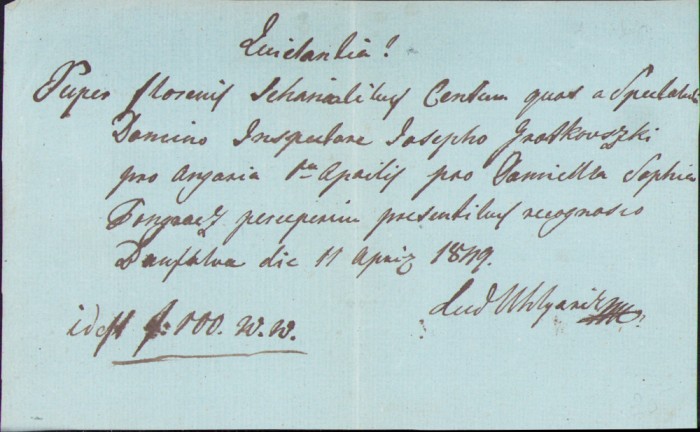 Quietantia!
Super florenis Schaealibus Centum quos a Spectabili
Domino Inspectore Josepho Gratkovszki
pro Angaria 1ma Aprilis pro Domicella Sophia
Pongracz perceperim presentibus recognosco
die 11 Apriz 1849.
Lud Uhlyariz
idest f: 100. W. W.